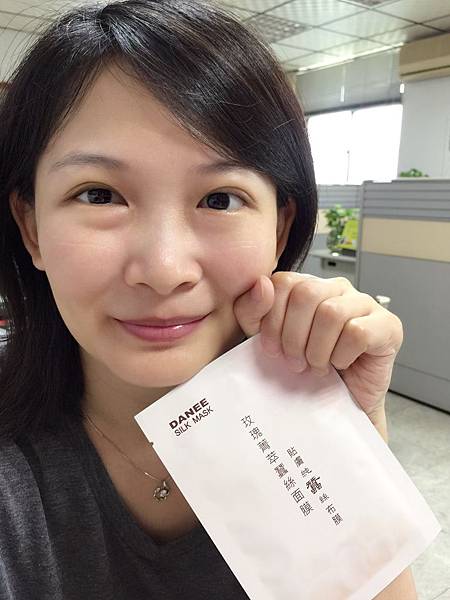 DANEE
SILK MASK
玫瑰菁萃蠶絲面膜
貼膚純蠶絲布膜